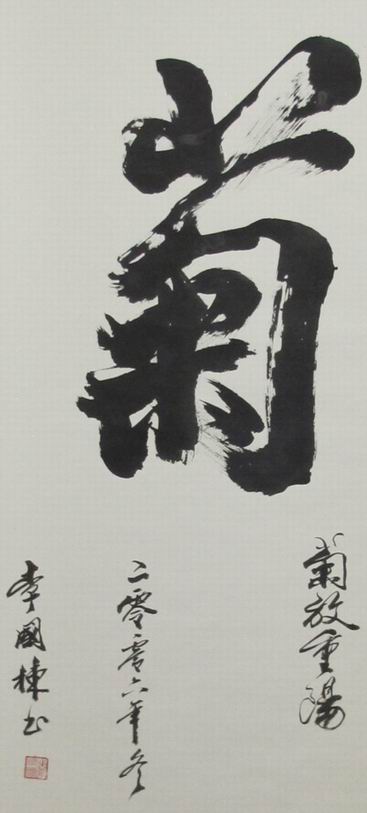 菊
菊放重陽
二零零六年冬
李國棟书